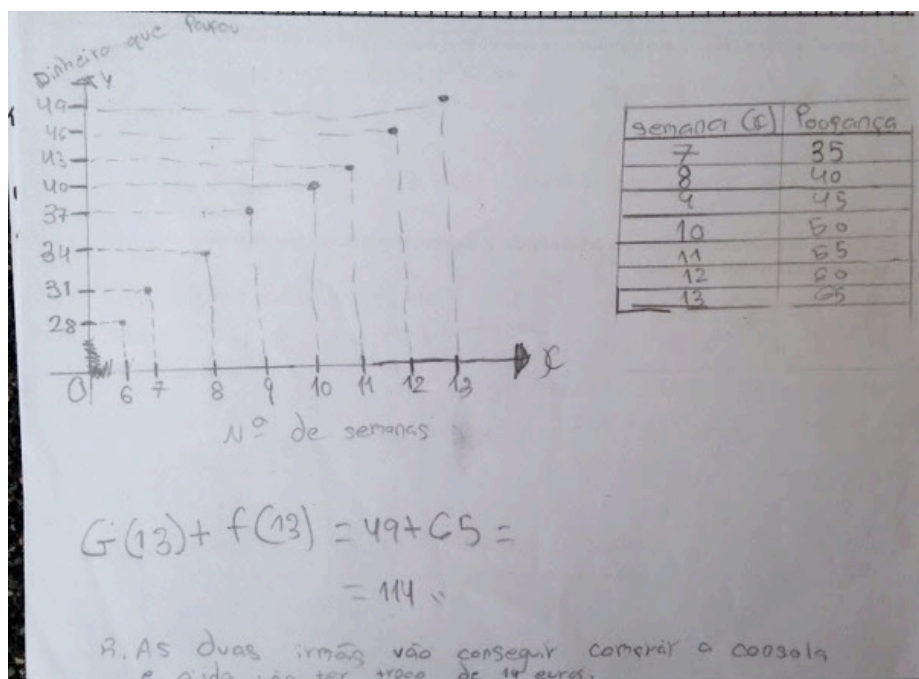 Dinheiro que Poupou
Y
49
46
43
40
37
34
31
28
0 6 7 8 9 10 11 12 13 X
Nº de semanas
semana (x) Poupança
7 35
8 40
9 45
10 50
11 55
12 60
13 65
G(13) + f(13) = 49 + 65 =
= 114
R. As duas irmãs vão conseguir comprar a consola
e ainda vão ter troco de 14 euros.